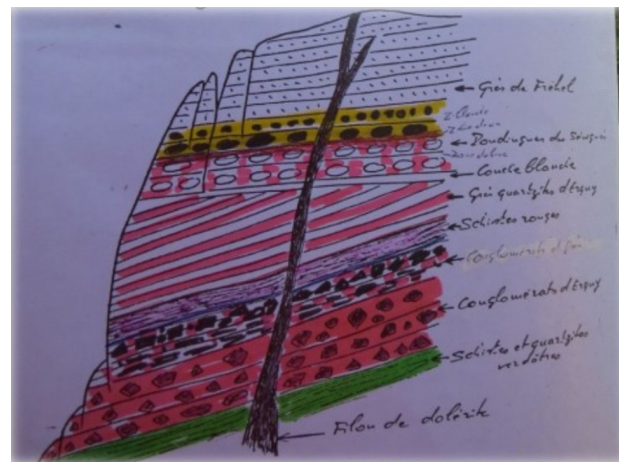 Grès de Fréhel
Poudingues du
Couche blanche
Grès quartzites d'Erquy
Schistes rouges
Conglomérats
Conglomérats d'Erquy
Schistes et quartzites
verdâtres
Filon de dolérite